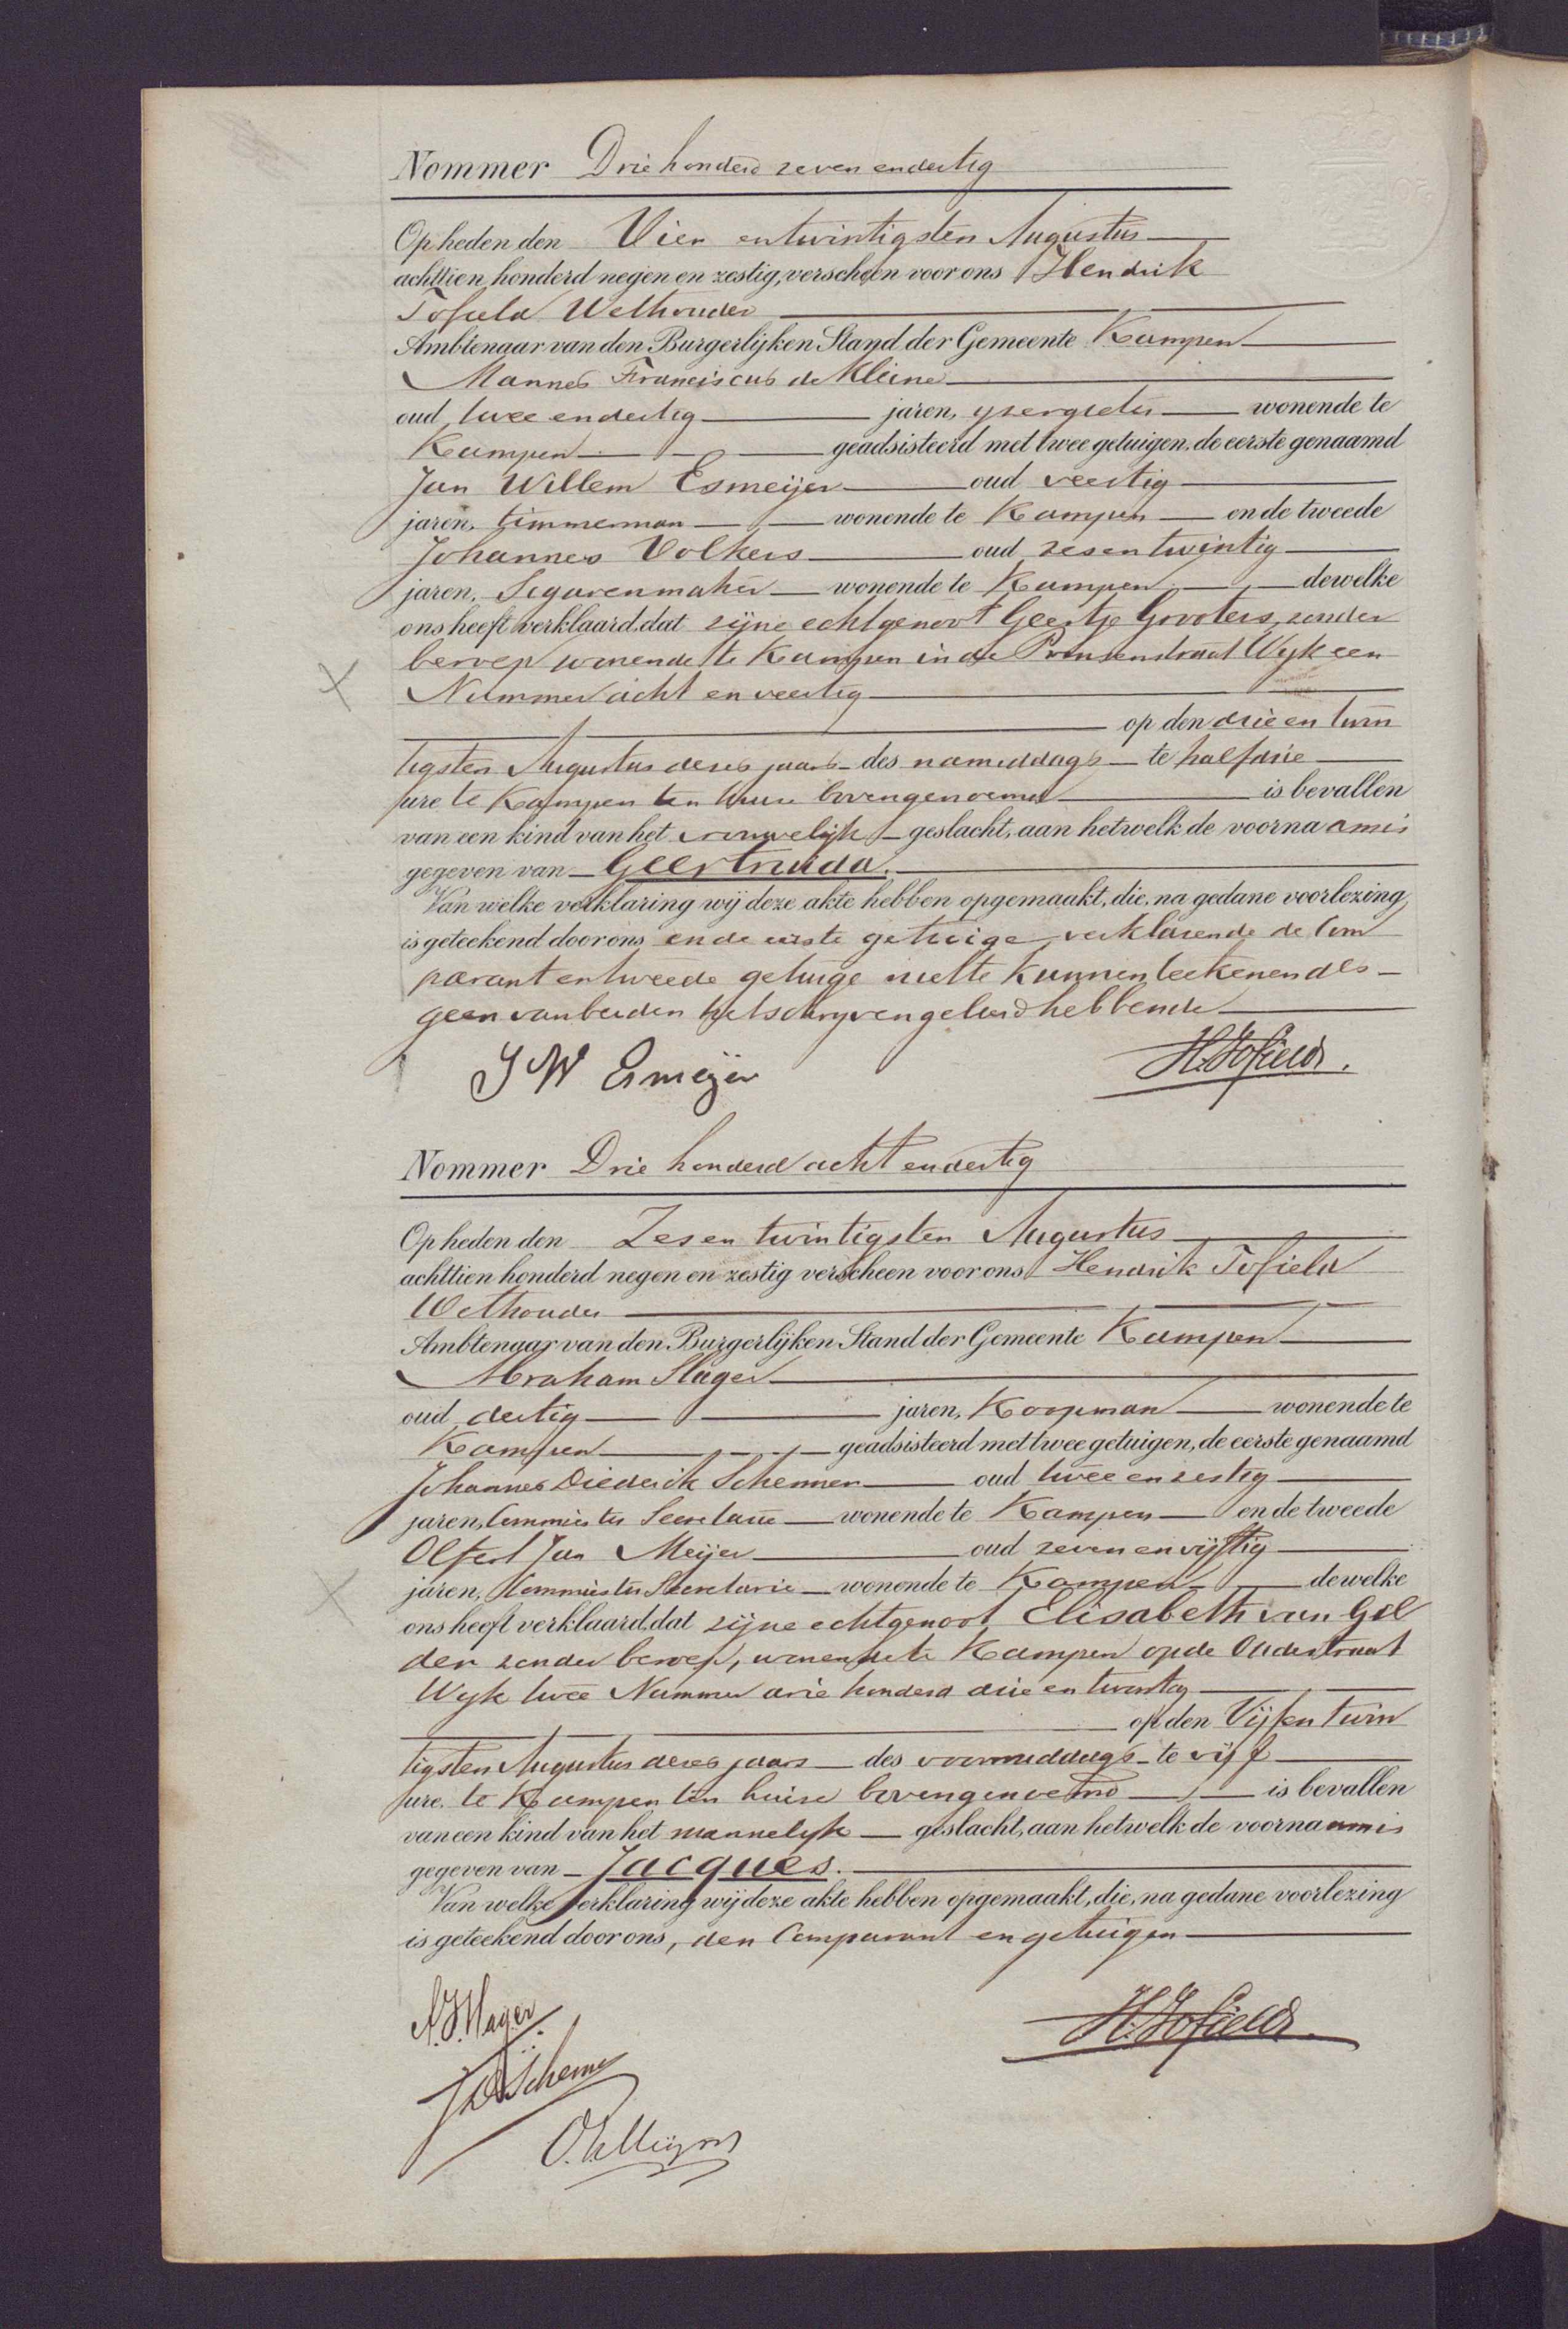 Nommer Driehonderd zeven en dertig
Op heden den Vier en twintigsten Augustus
achttien honderd negen en zestig, verscheen voor ons Hendrik
Tofield Wethouder
Ambtenaar van den Burgerlijken Stand der Gemeente Kampen
Mannes Franciscus de Kleine
oud twee en dertig jaren, ijzergieter wonende te
Kampen geadsisteerd met twee getuigen, de eerste genaamd
Jan Willem Esmeijer oud veertig
jaren, timmerman wonende te Kampen en de tweede
Johannes Volkers oud zes en twintig
jaren, Segarenmaker wonende te Kampen dewelke
ons heeft verklaard, dat zijne echtgenoot Geertje Grooters, zonder
beroep wonende te Kampen in de Prinsenstraat Wyk een
Nummer acht en veertig
op den drie en twin
tigsten Augustus dezes jaars des namiddags te half drie
ure te Kampen ten huize bovengenoemd is bevallen
van een kind van het vrouwelijk geslacht, aan hetwelk de voornaam is
gegeven van Geertruida.
Van welke verklaring wij deze akte hebben opgemaakt, die, na gedane voorlezing,
is geteekend door ons en de eerste getuige verklarende de Com
parant en tweede getuige niet te kunnen teekenen als
geen van beiden het schryven geleerd hebbende
J W Esmeijer H. Tofield.
Nommer Drie honderd acht en dertig
Op heden den Zes en twintigsten Augustus
achttien honderd negen en zestig verscheen voor ons Hendrik Tofield
Wethouder
Ambtenaar van den Burgerlijken Stand der Gemeente Kampen
Abraham Slager
oud dertig jaren, Koopman wonende te
Kampen geadsisteerd met twee getuigen, de eerste genaamd
Johannes Diederik Schemmer oud twee en zestig
jaren, Commies ter Secretarie wonende te Kampen en de tweede
Olfert Jan Meijer oud zeven en vijftig
jaren, Commies ter Secretarie wonende te Kampen dewelke
ons heeft verklaard, dat zijne echtgenoot Elisabeth van Gel
der zonder beroep, wonende te Kampen op de Oudestraat
Wyk twee Nummer drie honderd drie en twintig
op den Vijf en twin
tigsten Augustus dezes jaars des voormiddags te vijf
ure te Kampen ten huize bovengenoemd is bevallen
van een kind van het mannelyk geslacht, aan hetwelk de voornaam is
gegeven van Jacques.
Van welke verklaring wij deze akte hebben opgemaakt, die, na gedane voorlezing
is geteekend door ons, den Comparant en getuigen
A. Slager. H. Tofield.
J D Schemmer
O. J. Meijer